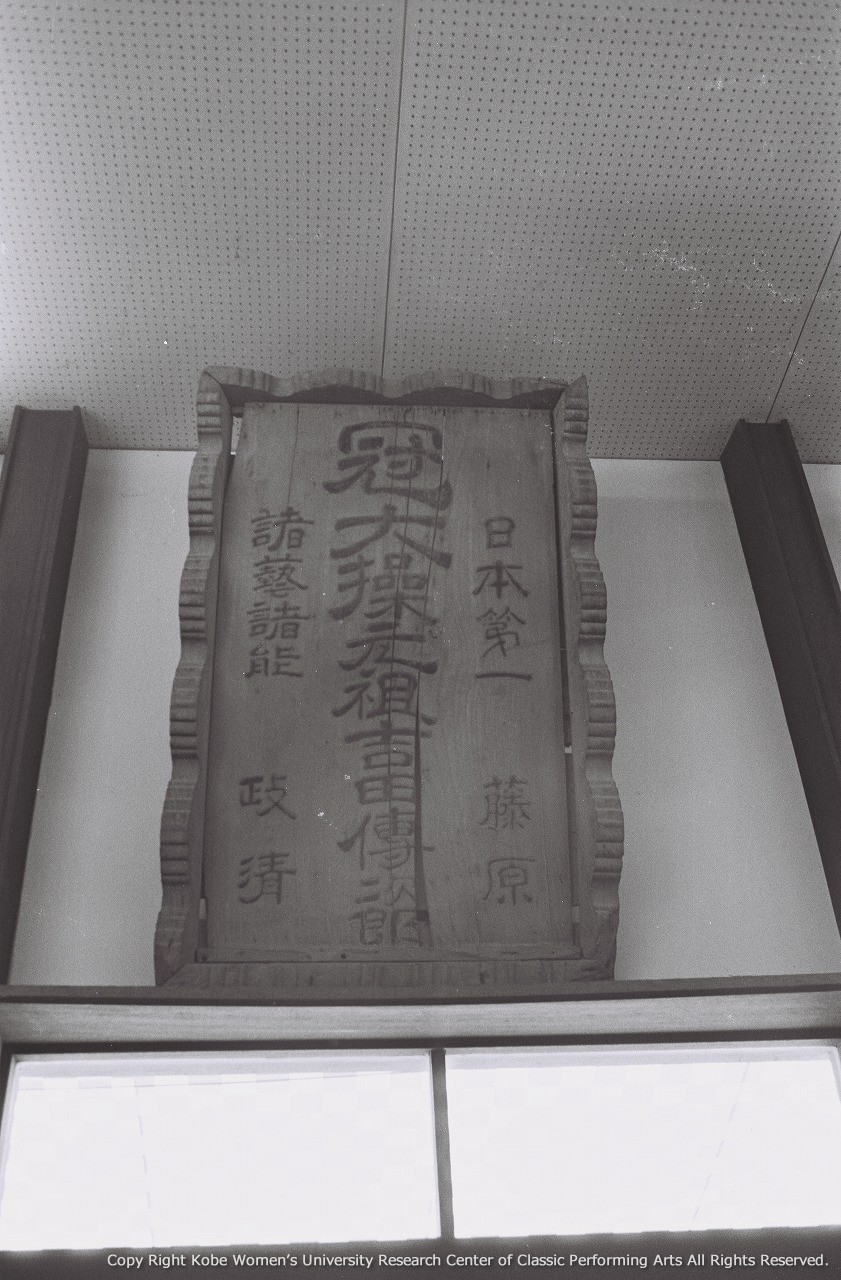 日本第一 藤原
冠大操元祖吉田傳次郎
諸藝諸能 政清
Copy Right Kobe Women's University Research Center of Classic Performing Arts All Rights Reserved.